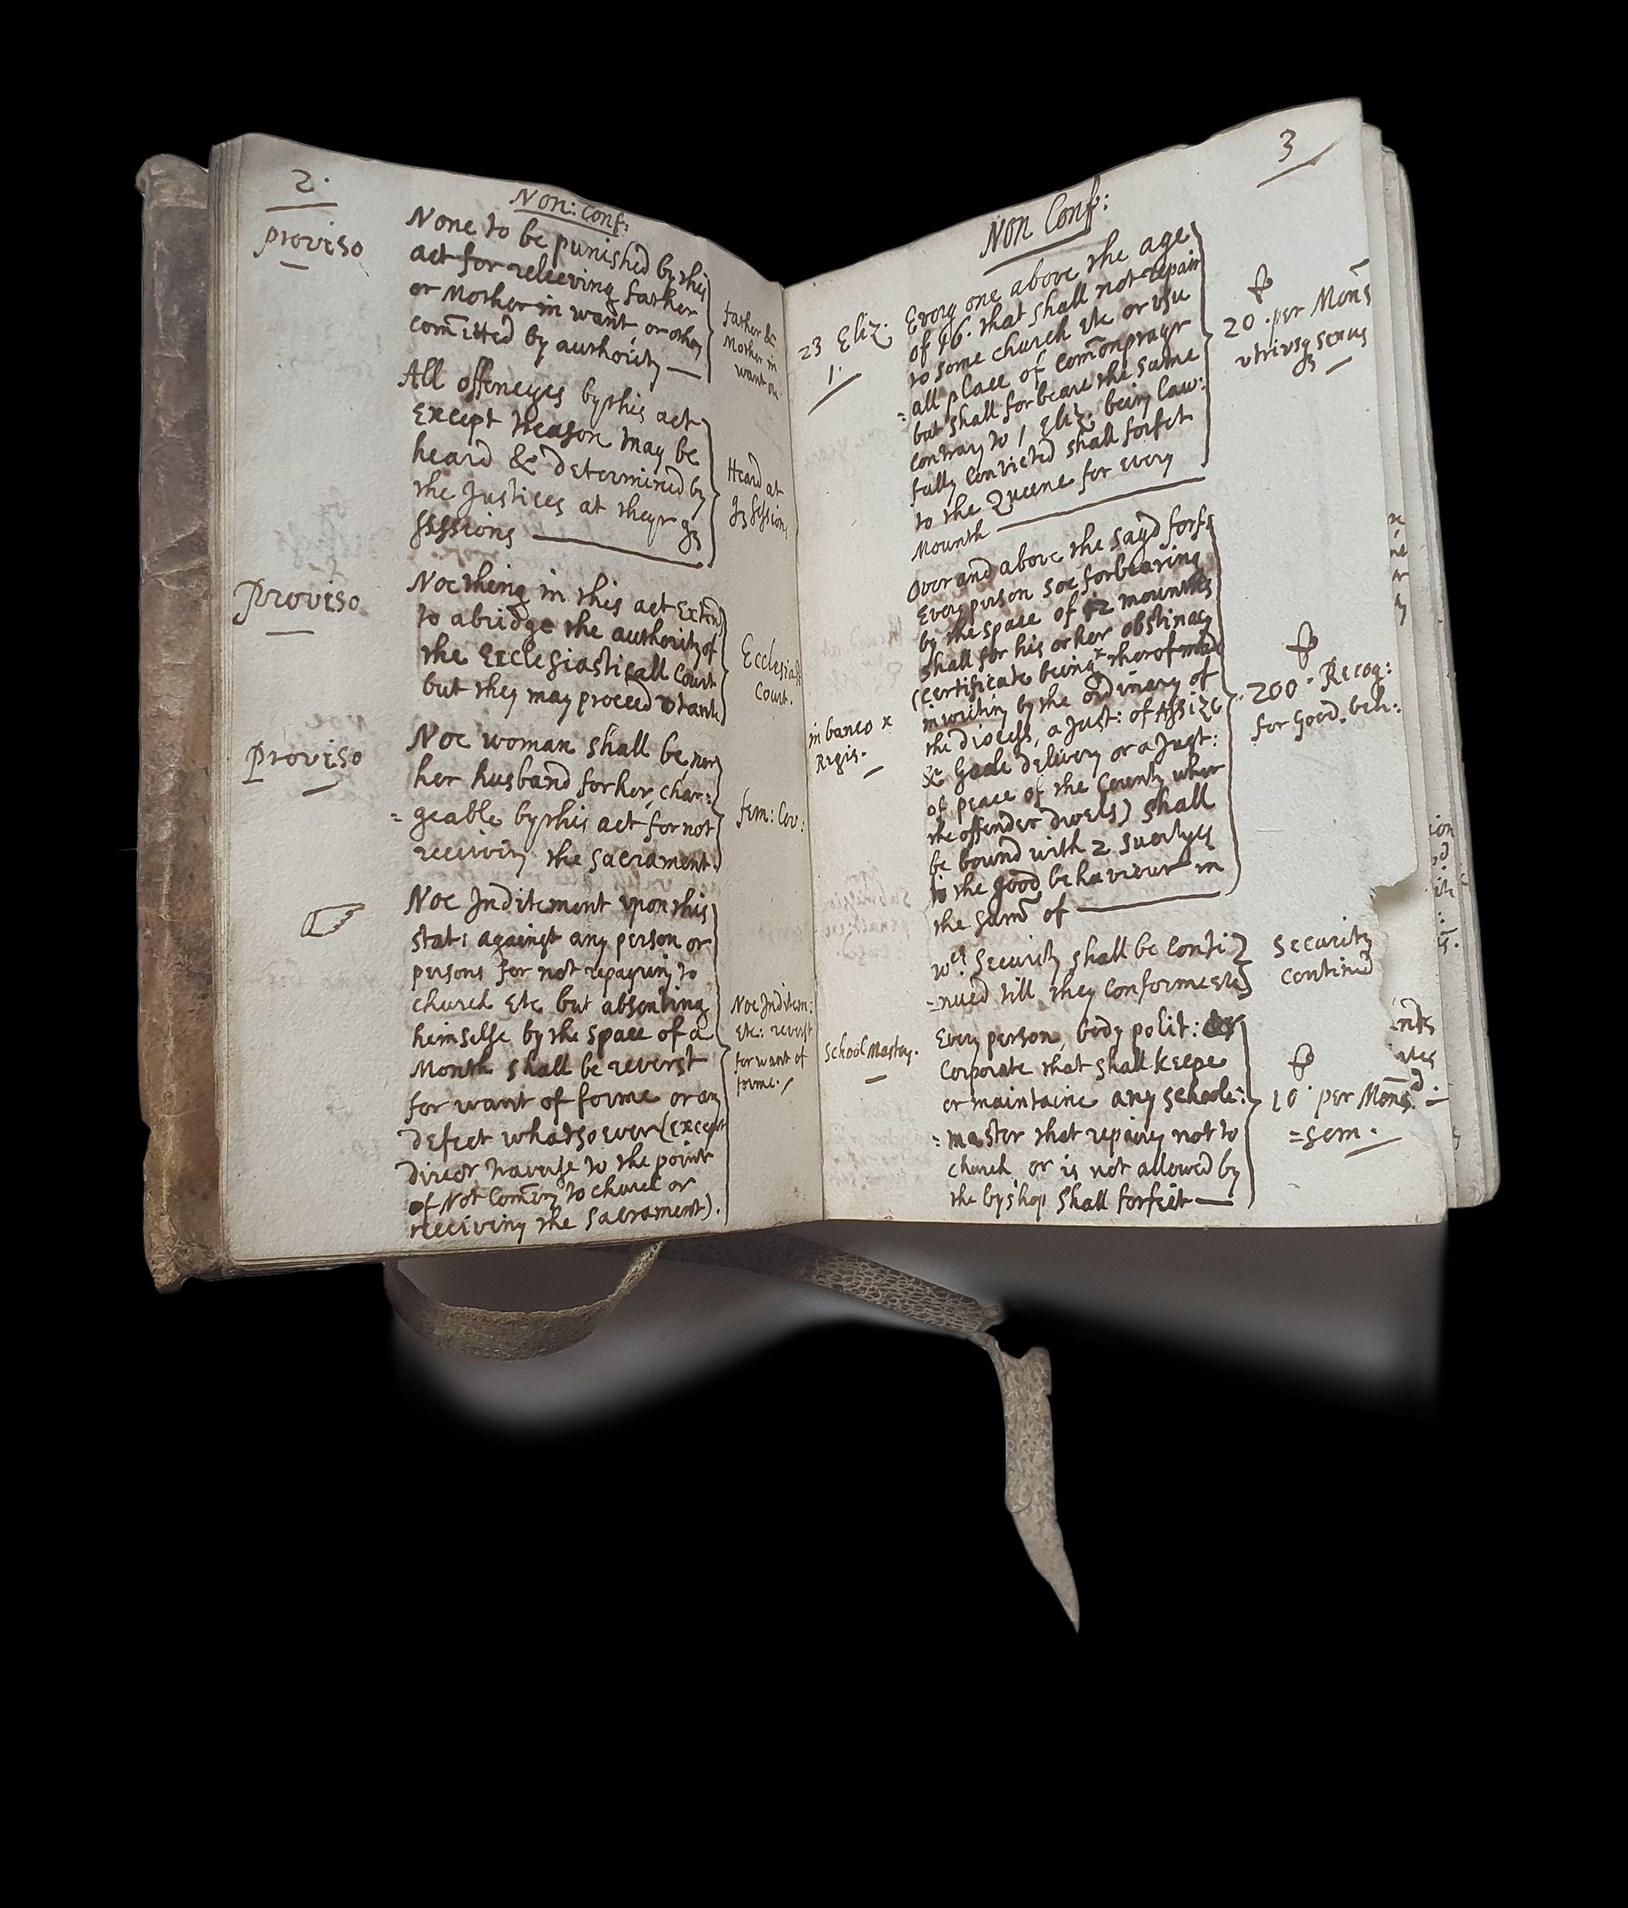 2.
Non: Conf:
proviso
None to be punished by this
act for releeving father
or Mother in want, or other
com̄itted by authority
father &
Mother in
want
All offences by this act
Except treason may be
heard & determined by
the Justices at theyr qz
Sessions
Heard at
qz Sessions
Proviso
Noething in this act Extend
to abridge the authority of
the Ecclesiasticall Court
but they may proceed
Court.
Proviso
Noe woman shall be nor
her husband for her, char:
=geable by this act for not
receiving the Sacrament.
fem: Cov:
Noe Inditement upon this
stat: against any person or
persons for not repayring to
church Etc but absenting
himselfe by the space of a
Month shall be reverst
for want of forme or any
defect whatsoever (except
direct traverse to the point
of Not Com̄ing to church or
receiving the Sacrament).
Noe Inditem:
Etc: reverst
for want of
forme.
3
Non Conf:
23 Eliz:
1.
Every one above the age
of 16. that shall not repair
to some church Etc or usu
=all place of com̄on prayr
but shall forbeare the same
contrary to 1 Eliz. being law:
fully convicted shall forfet
to the Queene for every
Mounth
20. per Mens
utriusq sexus
Over and above the sayd forf:
Every person soe forbearing
by the space of 12 mounths
shall for his or her obstinacy
(certificate being therof made
in writing by the ordinery of
the diocess, a Just: of Assize
& Goale delivery or a Just:
of peace of the County wher
the offender dwels) shall
be bound with 2 suertyes
to the good behaviour in
the sum̄ of
in banco
Regis.
200. Recog:
for good. beh:
wch Security shall be Conti
=nued till they conforme Etc
Security
continud
School Master.
Every person, body polit:
Corporate that shall keepe
or maintaine any schoole:
=master that repaires not to
church or is not allowed by
the byshop Shall forfeit
10. per Mens.